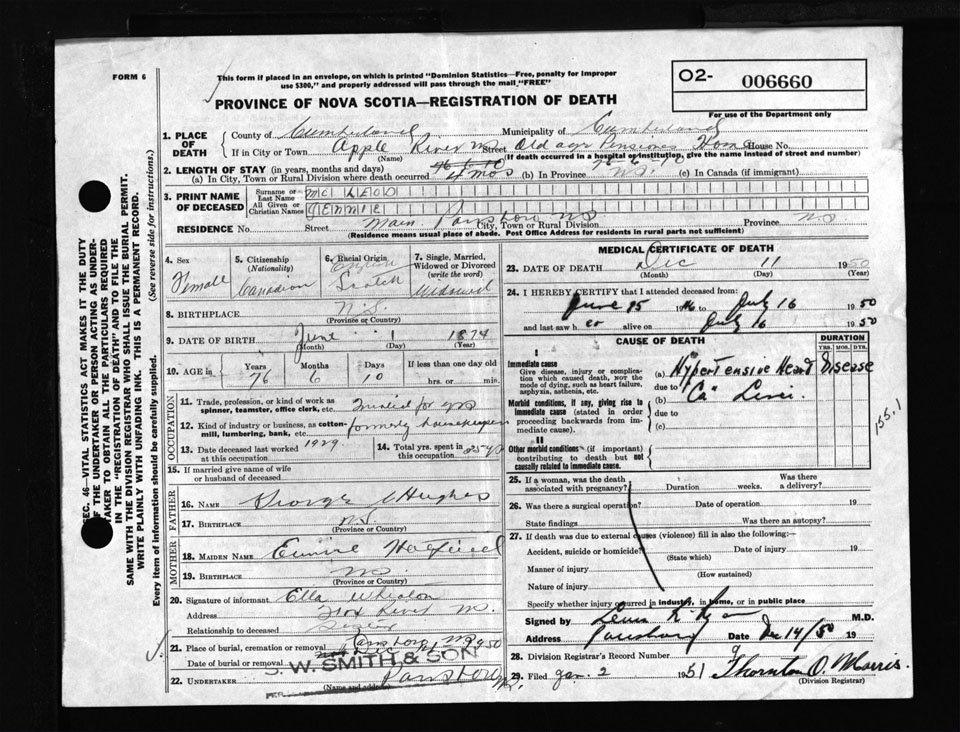 FORM 6
This form if placed in an envelope, on which is printed "Dominion Statistics—Free, penalty for improper
use $300," and properly addressed will pass through the mail "FREE"
O2- 006660
For use of the Department only
PROVINCE OF NOVA SCOTIA—REGISTRATION OF DEATH
1. PLACE OF DEATH
County of Cumberland Municipality of Cumberland
If in City or Town Apple River N.S. Street Old age Pensions Home House No.
(Name) (If death occurred in a hospital or institution, give the name instead of street and number)
2. LENGTH OF STAY (in years, months and days) 76-6-10
(a) In City, Town or Rural Division where death occurred 4 mos (b) In Province N.S. (c) In Canada (if immigrant)
3. PRINT NAME OF DECEASED
Surname or Last Name Mc LEOD
All Given or Christian Names JENNIE
RESIDENCE No. Street Main Parrsboro N.S City, Town or Rural Division Province N.S
(Residence means usual place of abode. Post Office Address for residents in rural parts not sufficient)
4. Sex Female
5. Citizenship (Nationality) Canadian
6. Racial Origin English Scotch
7. Single, Married, Widowed or Divorced (write the word) Widowed
8. BIRTHPLACE N.S.
(Province or Country)
9. DATE OF BIRTH June 1 1874
(Month) (Day) (Year)
10. AGE in Years 76 Months 6 Days 10 If less than one day old hrs. or min.
OCCUPATION
11. Trade, profession, or kind of work as spinner, teamster, office clerk, etc. for yrs
12. Kind of industry or business, as cotton-mill, lumbering, bank, etc. formerly housekeeper
13. Date deceased last worked at this occupation 1929
14. Total yrs. spent in this occupation 25 yrs
15. If married give name of wife or husband of deceased
FATHER
16. NAME George Hughes
17. BIRTHPLACE N.S.
(Province or Country)
MOTHER
18. MAIDEN NAME Eunice Hatfield
19. BIRTHPLACE N.S.
(Province or Country)
20. Signature of informant Ella Wheaton
Address Fox River N.S.
Relationship to deceased Sister
21. Place of burial, cremation or removal Parrsboro N.S
Date of burial or removal 1950
22. UNDERTAKER J. W. SMITH & SON
(Name and address) Parrsboro N.S.
MEDICAL CERTIFICATE OF DEATH
23. DATE OF DEATH Dec 11 1950
(Month) (Day) (Year)
24. I HEREBY CERTIFY that I attended deceased from:
June 25 1946 to July 16 1950
and last saw her alive on July 16 1950
CAUSE OF DEATH DURATION
YRS. MOS. DYS.
I
Immediate cause
Give disease, injury or complication which caused death, not the mode of dying, such as heart failure, asphyxia, asthenia, etc.
(a) Hypertensive Heart Disease
due to
Morbid conditions, if any, giving rise to immediate cause (stated in order proceeding backwards from immediate cause).
(b) Ca Liver.
due to
(c)
155.1
II
Other morbid conditions (if important) contributing to death but not causally related to immediate cause.
25. If a woman, was the death associated with pregnancy? Duration weeks. Was there a delivery?
26. Was there a surgical operation? Date of operation 19
State findings Was there an autopsy?
27. If death was due to external causes (violence) fill in also the following:-
Accident, suicide or homicide? Date of injury 19
(State which)
Manner of injury
(How sustained)
Nature of injury
Specify whether injury occurred in industry, in home, or in public place
Signed by M.D.
Address Parrsboro Date Dec 14/50 19
28. Division Registrar's Record Number 9
29. Filed Jan. 2 1951 Thornton O. Morris.
(Division Registrar)
SEC. 46—VITAL STATISTICS ACT MAKES IT THE DUTY
OF THE UNDERTAKER OR PERSON ACTING AS UNDERTAKER TO OBTAIN ALL THE PARTICULARS REQUIRED
IN THE "REGISTRATION OF DEATH" AND TO FILE THE
SAME WITH THE DIVISION REGISTRAR WHO SHALL ISSUE THE BURIAL PERMIT.
WRITE PLAINLY WITH UNFADING INK. THIS IS A PERMANENT RECORD.
Every item of information should be carefully supplied. (See reverse side for instructions.)